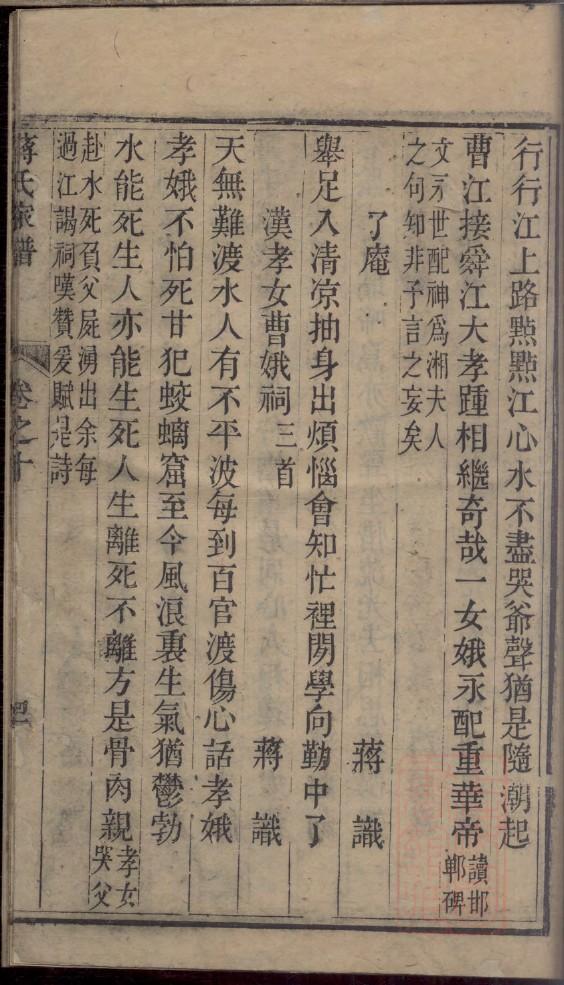 行行江上路點點江心水不盡哭爺聲猶是隨潮起
曹江接舜江大孝踵相繼奇哉一女娥永配重華帝讀邯
鄲碑
文有世配神爲湘夫人
之句知非予言之妄矣
了庵
蔣識
舉足入清凉抽身出煩惱會知忙裡閒學向勤中了
漢孝女曹娥祠三首
蔣識
天無難渡水人有不平波每到百官渡傷心話孝娥
孝娥不怕死甘犯蛟螭窟至今風浪裏生氣猶鬱勃
水能死生人亦能生死人生離死不離方是骨肉親孝女
哭父
赴水死負父屍湧出余每
過江謁祠嘆賛爰賦是詩
蔣氏家譜
卷之十